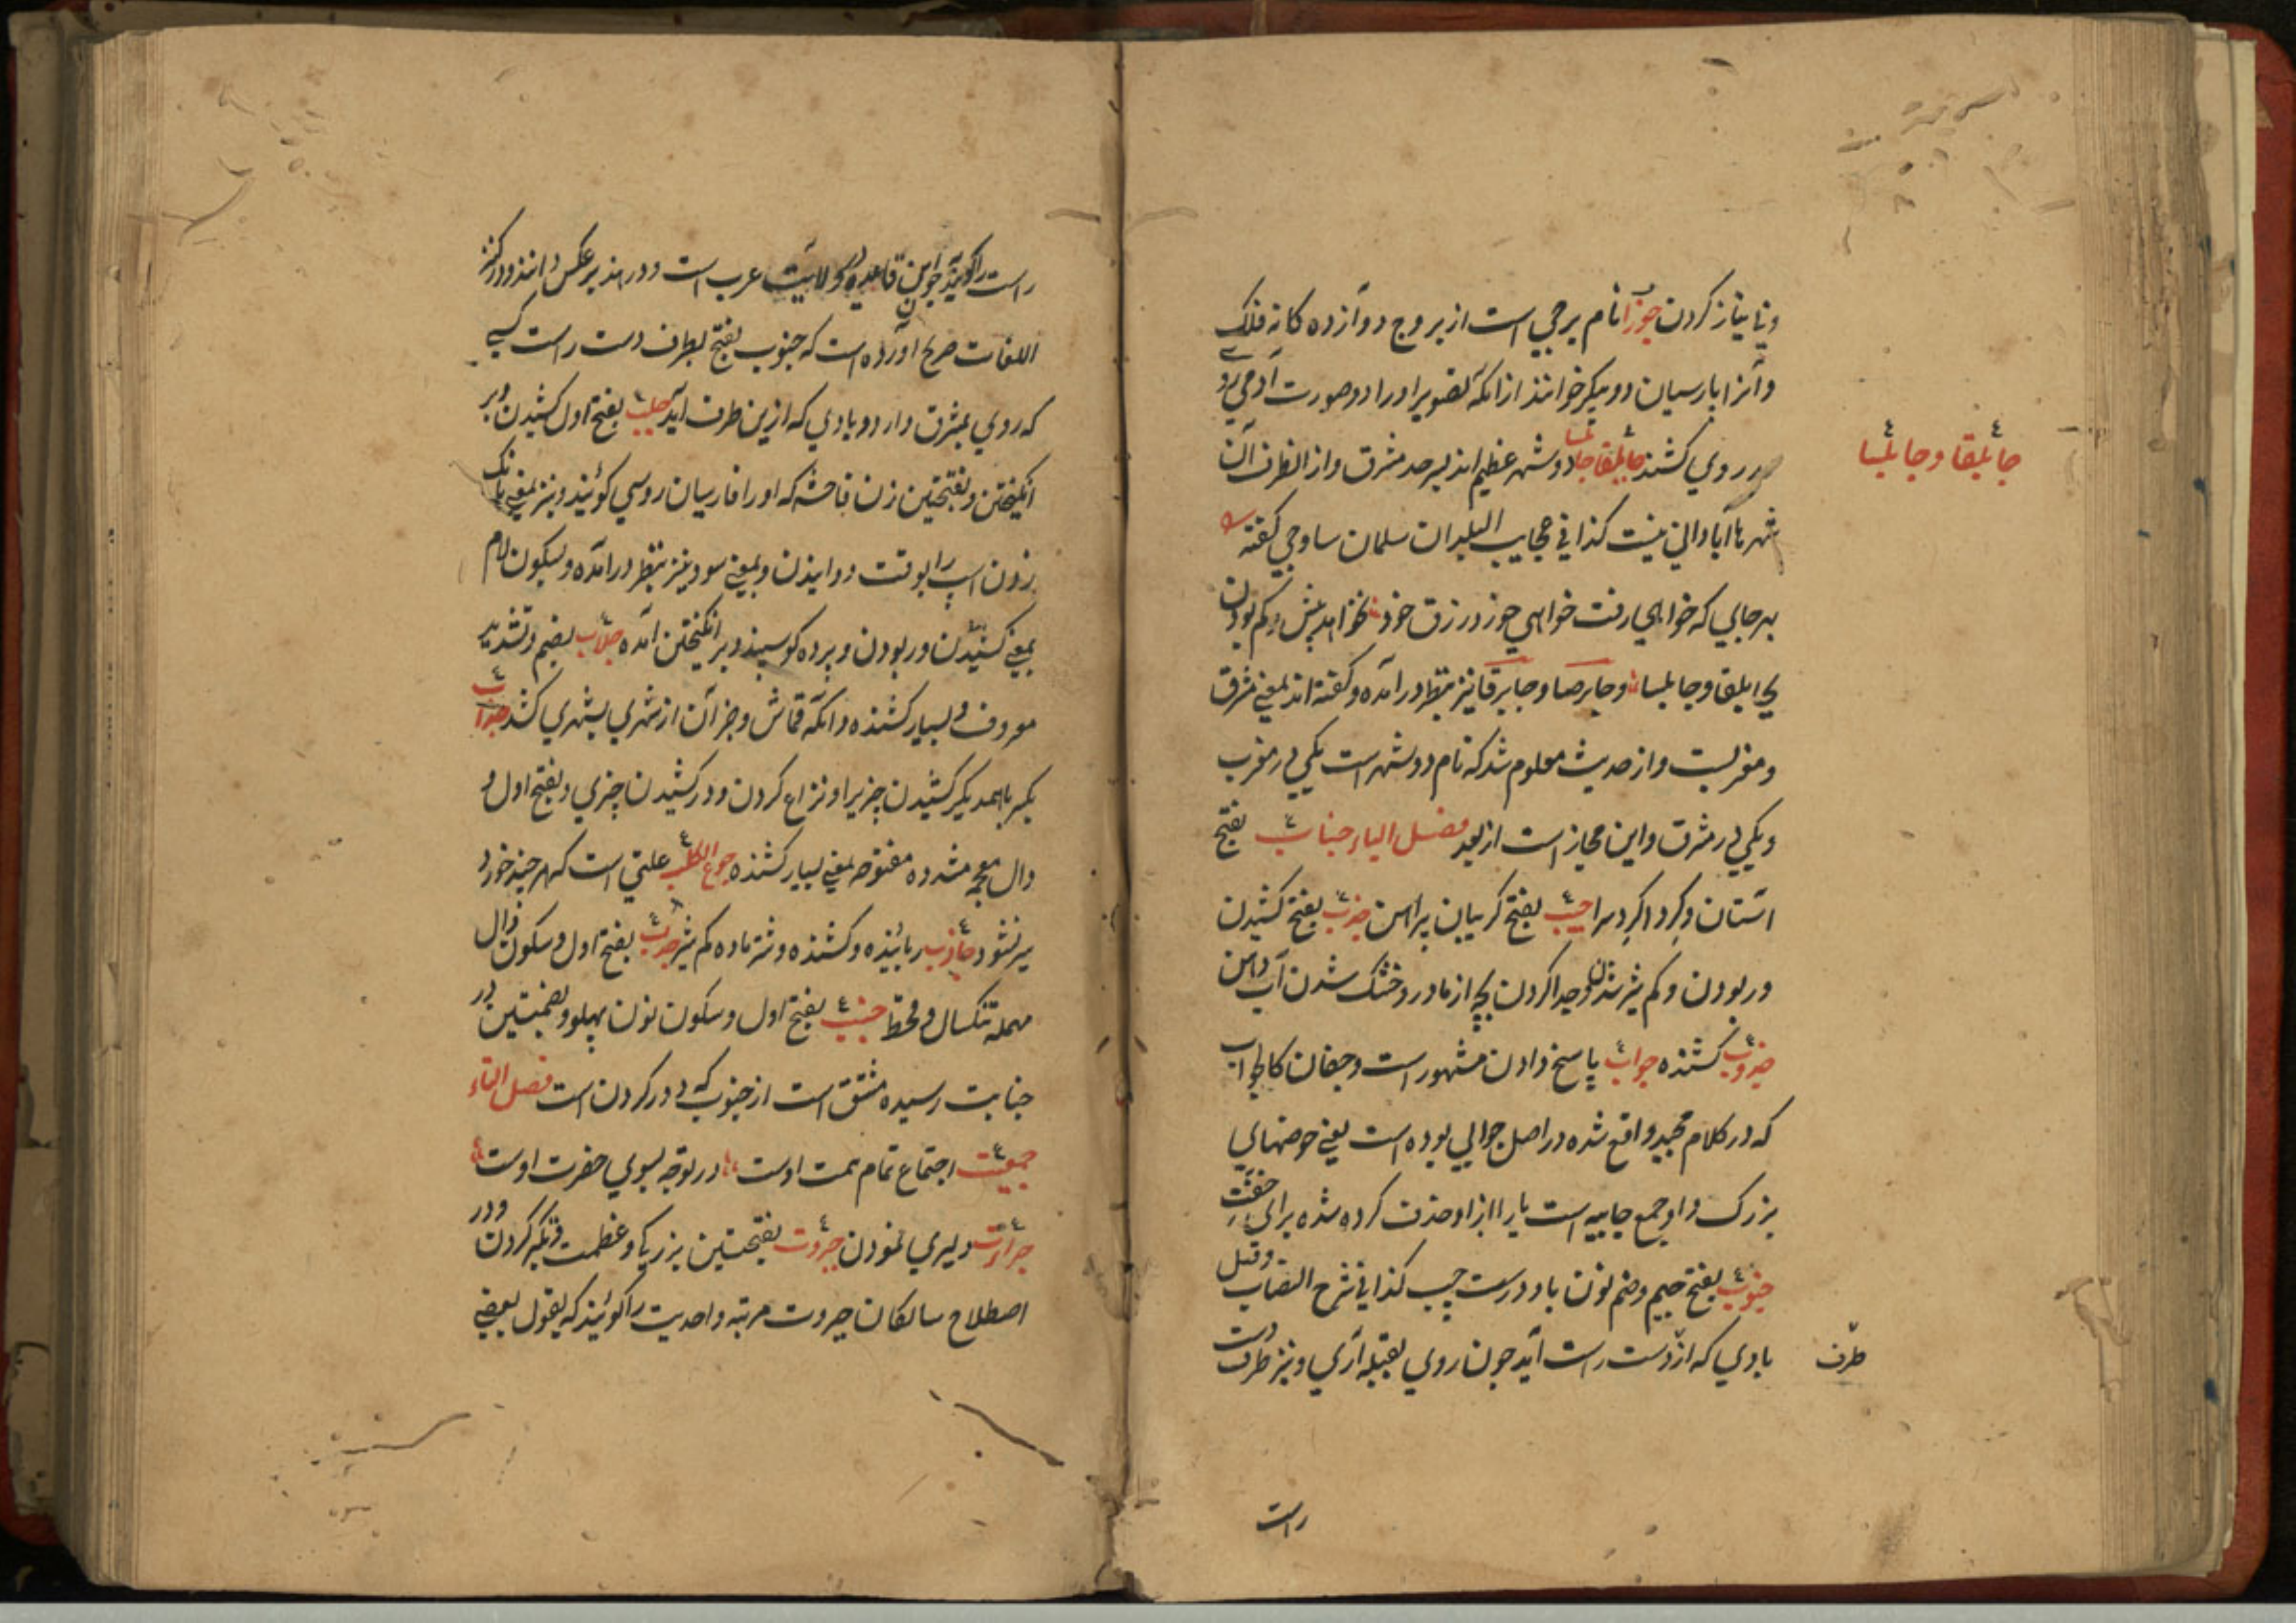 وبی نیاز کردن جوزا نام برجی است از بروج دوآزده کانه فلک
وآنرا پارسیان دو پیکر خوانند ازانکه تصویر او را دو صورت آدمی رو
در روی کشند جابلقا جابلسا دو شهر عظیم اند بسرحد مشرق واز انطرف آن
شهرها آبادانی نیست کذا فی عجایب البلدان سلمان ساوجی کفته
بهر جایی که خواهی رفت خواهی خورد رزق خود نخواهد بیش وکم بودن
بجابلقا وجابلسا وجابرصا وجابرقا نیز بنظر درآمده وکفته اند بمعنی مشرق
ومغربست واز حدیث معلوم شد که نام دو شهر است یکی در مغرب
ویکی در مشرق واین مجاز است از بعد فصل الباء جناب بفتح
آستان وکرداکرد سرا جیب بفتح کریبان پیراهن جذب بفتح کشیدن
وربودن وکم شیر شدن وجدا کردن بچه از مادر وخشک شدن آب دهن
جذوب کشنده جواب پاسخ دادن مشهور است وجفان کالجواب
که در کلام مجید واقع شده در اصل جوابی بوده است یعنی حوضهای
بزرک واو جمع جابیه است یا را ازاو حذف کرده شده برای خفت
جنوب بفتح جیم وضم نون باد دست چپ کذا فی شرح النصاب وقیل
بادی که از دست راست آید چون روی بقبله آری ونیز طرف دست
جابلقا وجابلسا
طرف
راست
راست را کویند چو این قاعده در ولایت عرب است ودر هند برعکس دانند ودر کنز
اللغات صریح آورده است که جنوب بفتح بطرف دست راست کسی
که روی بمشرق دارد وبادی که ازین طرف آید جلب بفتح اول کشیدن وبر
انکیختن وبفتحتین زن فاحشه که او را فارسیان روسپی کویند ونیز بمعنی بانک
زدن اسپ را بوقت دوانیدن وبمعنی سود نیز بنظر درآمده وبسکون لام
بمعنی کشیدن وربودن وبرده کوسپند وبر انکیختن آمده جلاب بضم وتشدید
معروف وبسیار کشنده وآنکه قماش وجز آن از شهری بشهری کشد جذاب
بکسر باهمدیکر کشیدن چیزیرا ونزاع کردن ودر کشیدن چیزی وبفتح اول و
ذال معجمه مشدده مفتوحه بمعنی بسیار کشنده جوع الکلب علتی است که هرچند خورد
سیر نشود جاذب رباینده وکشنده وشتر ماده کم شیر جدب بفتح اول وسکون دال
مهمله تنکسال وقحط جنب بفتح اول وسکون نون پهلو وبضمتین در
جنابت رسیده مشتق است از جنوب که دور کردن است فصل التاء
جمعیت اجتماع تمام همت اوست در توجه بسوی حضرت اوست
جرأت دلیری نمودن جبروت بفتحتین بزرکی وعظمت وتکبر کردن ودر
اصطلاح سالکان جبروت مرتبه واحدیت را کویند که بقول بعضی